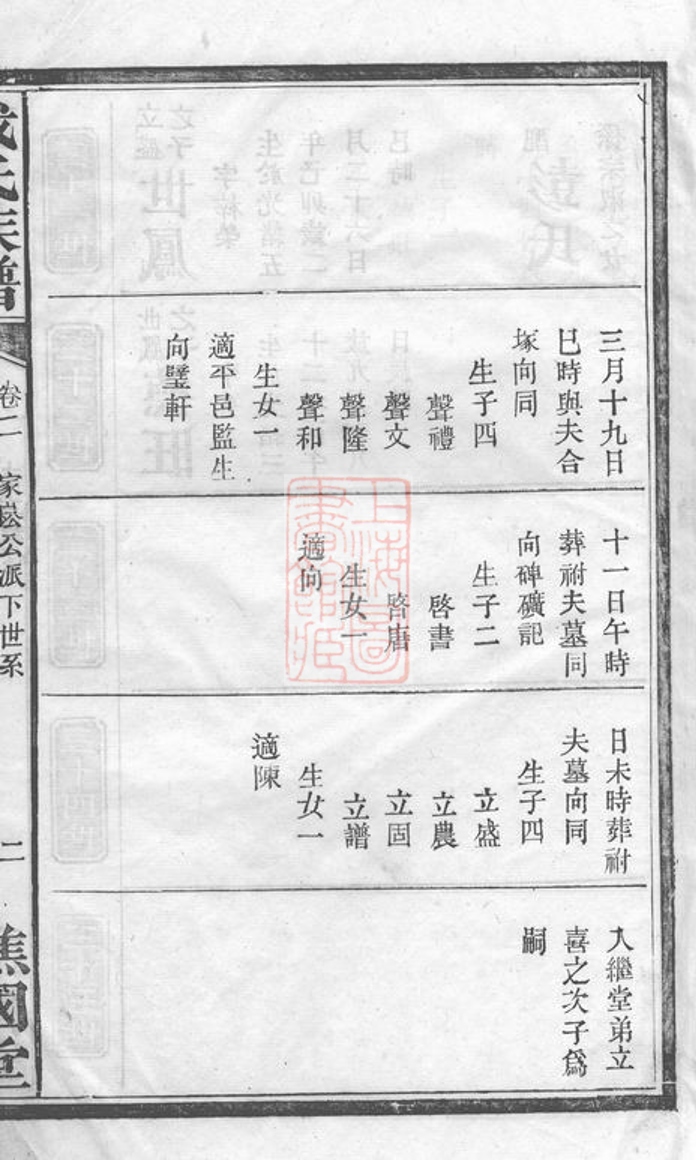 三月十九日
巳時與夫合
塚向同
生子四
聲禮
聲文
聲隆
聲和
生女一
適平邑監生
向璧軒
十一日午時
葬祔夫墓同
向碑礦記
生子二
啓書
啓唐
生女一
適向
日未時葬祔
夫墓向同
生子四
立盛
立農
立固
立譜
生女一
適陳
入繼堂弟立
喜之次子為
嗣
氏族譜
卷二
家崧公派下世系
二
譙國堂
上海圖書館藏